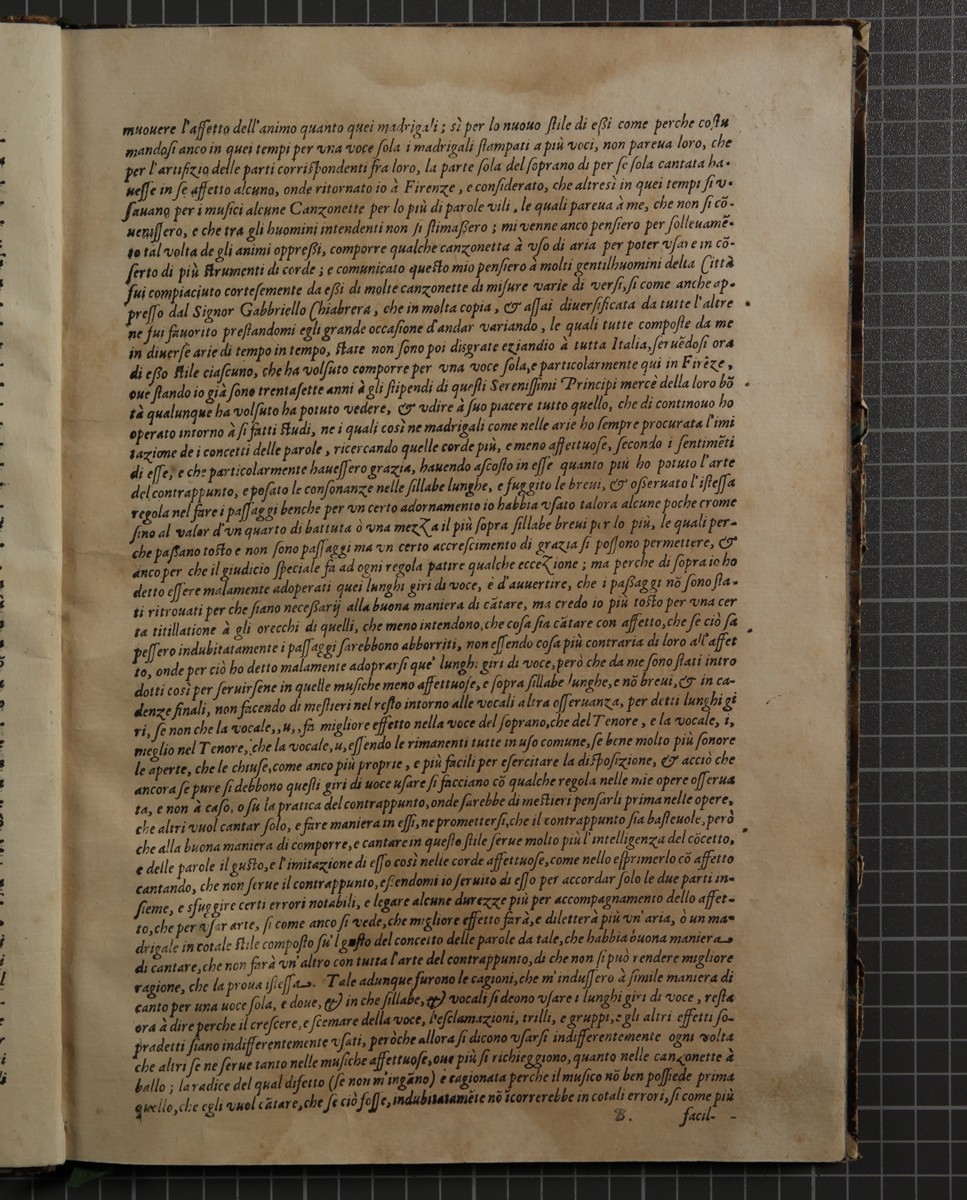 muouere l'affetto dell'animo quanto quei madrigali; sì per lo nuouo ſtile di eßi come perche coſtu
mandoſi anco in quei tempi per vna voce ſola i madrigali ſtampati a più voci, non pareua loro, che
per l'artifizio delle parti corriſpondenti fra loro, la parte ſola del ſoprano di per ſe ſola cantata ha-
ueſſe in ſe affetto alcuno, onde ritornato io à Firenze, e conſiderato, che altresì in quei tempi ſi v-
ſauano per i muſici alcune Canzonette per lo più di parole vili, le quali pareua à me, che non ſi cō-
ueniſſero, e che tra gli huomini intendenti non ſi ſtimaßero; mi venne anco penſiero per ſolleuamē-
to tal volta de gli animi oppreßi, comporre qualche canzonetta à vſo di aria per poter vſar e in cō-
ſerto di più ſtrumenti di corde; e comunicato queſto mio penſiero à molti gentilhuomini della Città
fui compiaciuto corteſemente da eßi di molte canzonette di miſure varie di verſi, ſi come anche ap-
preſſo dal Signor Gabbriello Chiabrera, che in molta copia, & aſſai diuerſificata da tutte l'altre
ne fui fauorito preſtandomi egli grande occaſione d'andar variando, le quali tutte compoſte da me
in diuerſe arie di tempo in tempo, ſtate non ſono poi diſgrate eziandio à tutta Italia, ſeruēdoſi ora
di eßo ſtile ciaſcuno, che ha volſuto comporre per vna voce ſola, e particolarmente qui in Firēze,
oue ſtando io già ſono trentaſette anni à gli ſtipendi di queſti Sereniſſimi Principi mercè della loro bō
tà qualunque ha volſuto ha potuto vedere, & vdire à ſuo piacere tutto quello, che di continouo ho
operato intorno à ſi fatti ſtudi, ne i quali così ne madrigali come nelle arie ho ſempre procurata l'imi
tazione de i concetti delle parole, ricercando quelle corde più, e meno affettuoſe, ſecondo i ſentimēti
di eſſe, e che particolarmente haueſſero grazia, hauendo aſcoſto in eſſe quanto più ho potuto l'arte
del contrappunto, e poſato le conſonanze nelle ſillabe lunghe, e fuggito le breui, & oßeruato l'iſteſſa
regola nel fare i paſſaggi benche per vn certo adornamento io habbia vſato talora alcune poche crome
fino al valor d'vn quarto di battuta ò vna mezza il più ſopra ſillabe breui per lo più, le quali per-
che paßano toſto e non ſono paſſaggi ma vn certo accreſcimento di grazia ſi poſſono permettere, &
anco per che il giudicio ſpeciale fà ad ogni regola patire qualche eccezione; ma perche di ſopra io ho
detto eſſere malamente adoperati quei lunghi giri di voce, è d'auuertire, che i paßaggi nō ſono ſta-
ti ritrouati per che ſiano neceßarij alla buona maniera di cātare, ma credo io più toſto per vna cer
ta titillatione à gli orecchi di quelli, che meno intendono, che coſa ſia cātare con affetto, che ſe ciò ſa
peſſero indubitatamente i paſſaggi ſarebbono abborriti, non eſſendo coſa più contraria di loro all'affet
to, onde per ciò ho detto malamente adoprarſi que' lunghi giri di voce, però che da me ſono ſtati intro
dotti così per ſeruirſene in quelle muſiche meno affettuoſe, e ſopra ſillabe lunghe, e nō breui, & in ca-
denze finali, non facendo di meſtieri nel reſto intorno alle vocali altra oſſeruanza, per detti lunghi gi
ri, ſe non che la vocale,,u,, fà migliore effetto nella voce del ſoprano, che del Tenore, e la vocale, i,
meglio nel Tenore, che la vocale, u, eſſendo le rimanenti tutte in uſo comune, ſe bene molto più ſonore
le aperte, che le chiuſe, come anco più proprie, e più facili per eſercitare la diſpoſizione, & acciò che
ancora ſe pure ſi debbono queſti giri di uoce uſare ſi facciano cō qualche regola nelle mie opere oſſerua
ta, e non à caſo, o ſu la pratica del contrappunto, onde ſarebbe di meſtieri penſarli prima nelle opere,
che altri vuol cantar ſolo, e fare maniera in eſſi, ne prometterſi, che il contrappunto ſia baſteuole, però
che alla buona maniera di comporre, e cantare in queſto ſtile ſerue molto più l'intelligenza del cōcetto,
e delle parole il guſto, e l'imitazione di eſſo così nelle corde affettuoſe, come nello eſprimerlo cō affetto
cantando, che non ſerue il contrappunto, eßendomi io ſeruito di eſſo per accordar ſolo le due parti in-
ſieme, e sfuggire certi errori notabili, e legare alcune durezze più per accompagnamento dello affet-
to, che per vſar arte, ſi come anco ſi vede, che migliore effetto farà, e diletterà più vn'aria, ò un ma-
drigale in cotale ſtile compoſto ſu'l guſto del concetto delle parole da tale, che habbia buona maniera
di cantare, che non farà vn'altro con tutta l'arte del contrappunto, di che non ſi può rendere migliore
ragione, che la proua iſteſſa. Tale adunque furono le cagioni, che m'induſſero à ſimile maniera di
canto per una uoce ſola, e doue, & in che ſillabe, & vocali ſi deono vſare i lunghi giri di voce, reſta
ora à dire perche il creſcere, e ſcemare della voce, l'eſclamazioni, trilli, e gruppi, e gli altri effetti ſo-
pradetti ſiano indifferentemente vſati, peròche allora ſi dicono vſarſi indifferentemente ogni volta
che altri ſe ne ſerue tanto nelle muſiche affettuoſe, oue più ſi richieggiono, quanto nelle canzonette à
ballo; la radice del qual difetto (ſe non m'ingāno) è cagionata perche il muſico nō ben poſſiede prima
quello, che egli vuol cātare, che ſe ciò foſſe, indubitatamēte nō icorrerebbe in cotali errori, ſi come più
B. facil- -